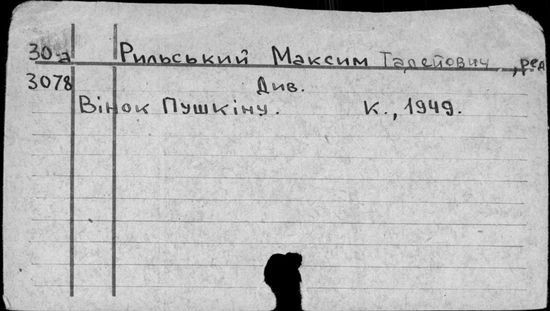 30 а Рильський Максим Тадейович, ред
3078 Див.
Вінок Пушкіну. К., 1949.